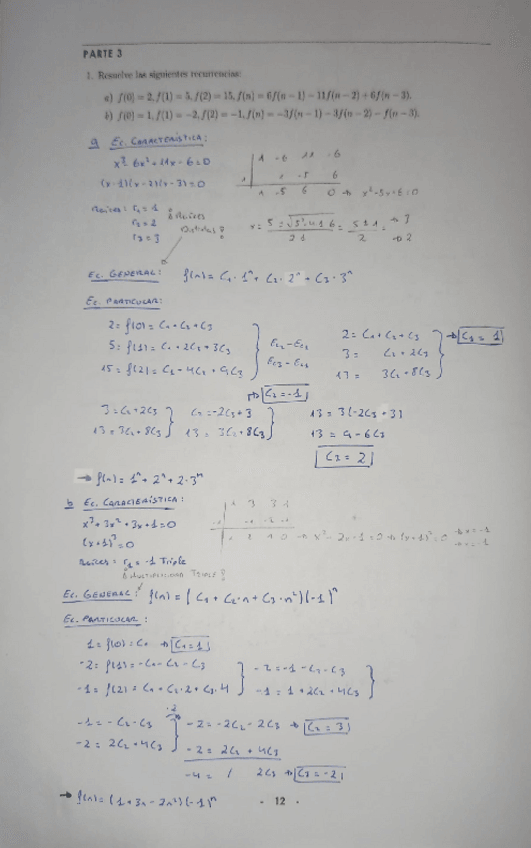 PARTE 3
1. Resuelve las siguientes recurrencias:
a) f(0) = 2, f(1) = 5, f(2) = 15, f(n) = 6f(n − 1) − 11f(n − 2) + 6f(n − 3).
b) f(0) = 1, f(1) = −2, f(2) = −1, f(n) = −3f(n − 1) − 3f(n − 2) − f(n − 3).
a Ec. CARACTERÍSTICA:
x³ - 6x² + 11x - 6 = 0
1 -6 11 -6
(x-1)(x-2)(x-3) = 0
1 1 -5 6
1 -5 6 0 → x²-5x+6=0
Raíces: r₁ = 1
r₂ = 2
r₃ = 3
¡Raíces Distintas!
Ec. GENERAL: f(n) = C₁·1ⁿ + C₂·2ⁿ + C₃·3ⁿ
Ec. PARTICULAR:
2 = f(0) = C₁ + C₂ + C₃
5 = f(1) = C₁ + 2C₂ + 3C₃
15 = f(2) = C₁ + 4C₂ + 9C₃
Ec₂ - Ec₁
Ec₃ - Ec₁
2 = C₁ + C₂ + C₃
3 = C₂ + 2C₃
13 = 3C₂ + 8C₃
→ C₁ = 1
→ C₂ = -1
3 = C₂ + 2C₃
13 = 3C₂ + 8C₃
C₂ = -2C₃ + 3
13 = 3C₂ + 8C₃
13 = 3(-2C₃ + 3)
13 = 9 - 6C₃
C₃ = 2
→ f(n) = 1ⁿ + 2ⁿ + 2·3ⁿ
b Ec. CARACTERÍSTICA:
x³ + 3x² + 3x + 1 = 0
1 3 3 1
(x+1)³ = 0
Raíces = r₁ = -1 Triple
¡Multiplicidad Triple!
Ec. GENERAL: f(n) = (C₁ + C₂·n + C₃·n²)(-1)ⁿ
Ec. PARTICULAR:
1 = f(0) = C₁ → C₁ = 1
-2 = f(1) = -C₁ - C₂ - C₃
-1 = f(2) = C₁ + C₂·2 + C₃·4
-2 = -1 - C₂ - C₃
-1 = 1 + 2C₂ + 4C₃
-1 = -C₂ - C₃
-2 = 2C₂ + 4C₃
·2
-2 = -2C₂ - 2C₃ → C₂ = 3
-2 = 2C₂ + 4C₃
-4 = / 2C₃ → C₃ = -2
→ f(n) = (1 + 3n - 2n²)(-1)ⁿ
· 12 ·